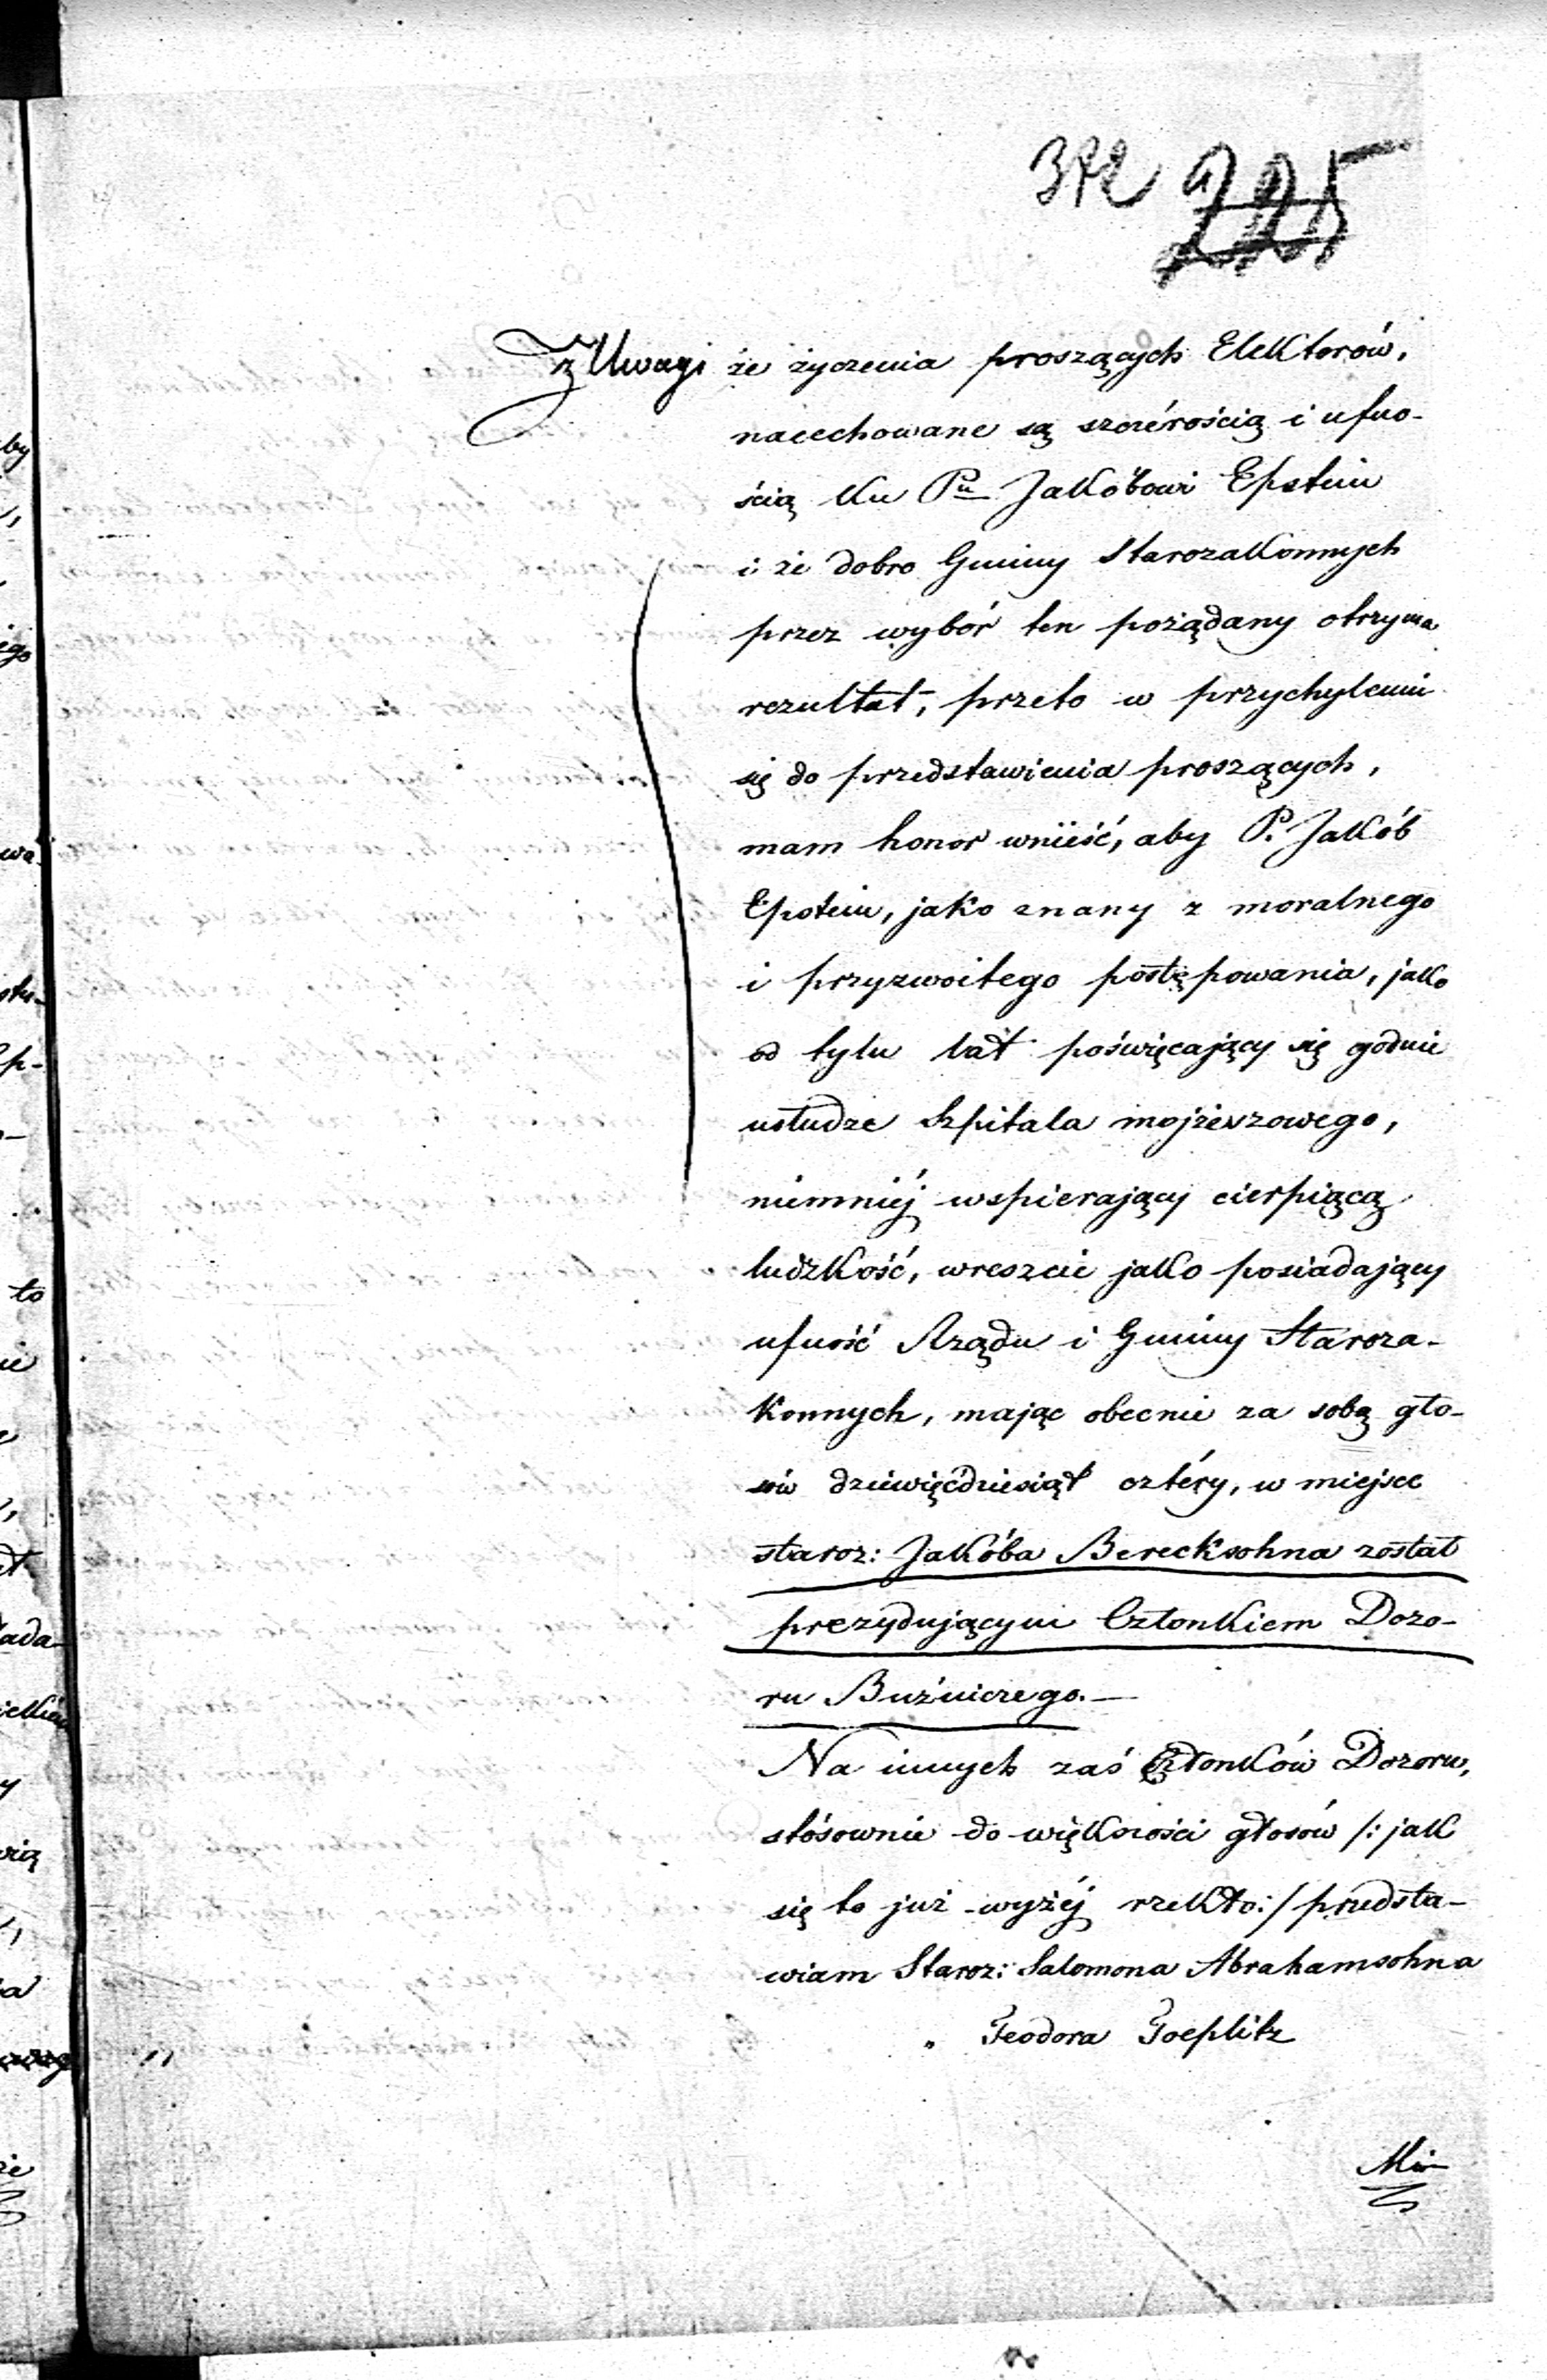 372 225
Z Uwagi że życzenia proszących Elektorów,
nacechowane są szczérością i ufno-
ścią ku Pu Jakóbowi Epstein
i że dobro Gminy Starozakonnych
przez wybór ten pożądany otrzyma
rezultat, przeto w przychyleniu
się do przedstawienia proszących,
mam honor wnieść, aby P. Jakób
Epstein, jako znany z moralnego
i przyzwoitego postępowania, jako
od tylu lat poświęcający się godnie
usłudze Szpitala mojżeszowego,
niemniéj wspierający cierpiącą
ludzkość, wreszcie jako posiadający
ufność Rządu i Gminy Staroza-
konnych, mając obecnie za sobą gło-
sów dziewięćdziesiąt cztéry, w miejsce
staroz: Jakóba Berecksohna został
prezydującym Członkiem Dozo-
ru Bużniczego.—
Na innych zaś Członków Dozoru,
stósownie do większości głosów /: jak
się to już wyżéj rzekło:/ przedsta-
wiam Staroz: Salomona Abrahamsohna
„ Teodora Toeplitz